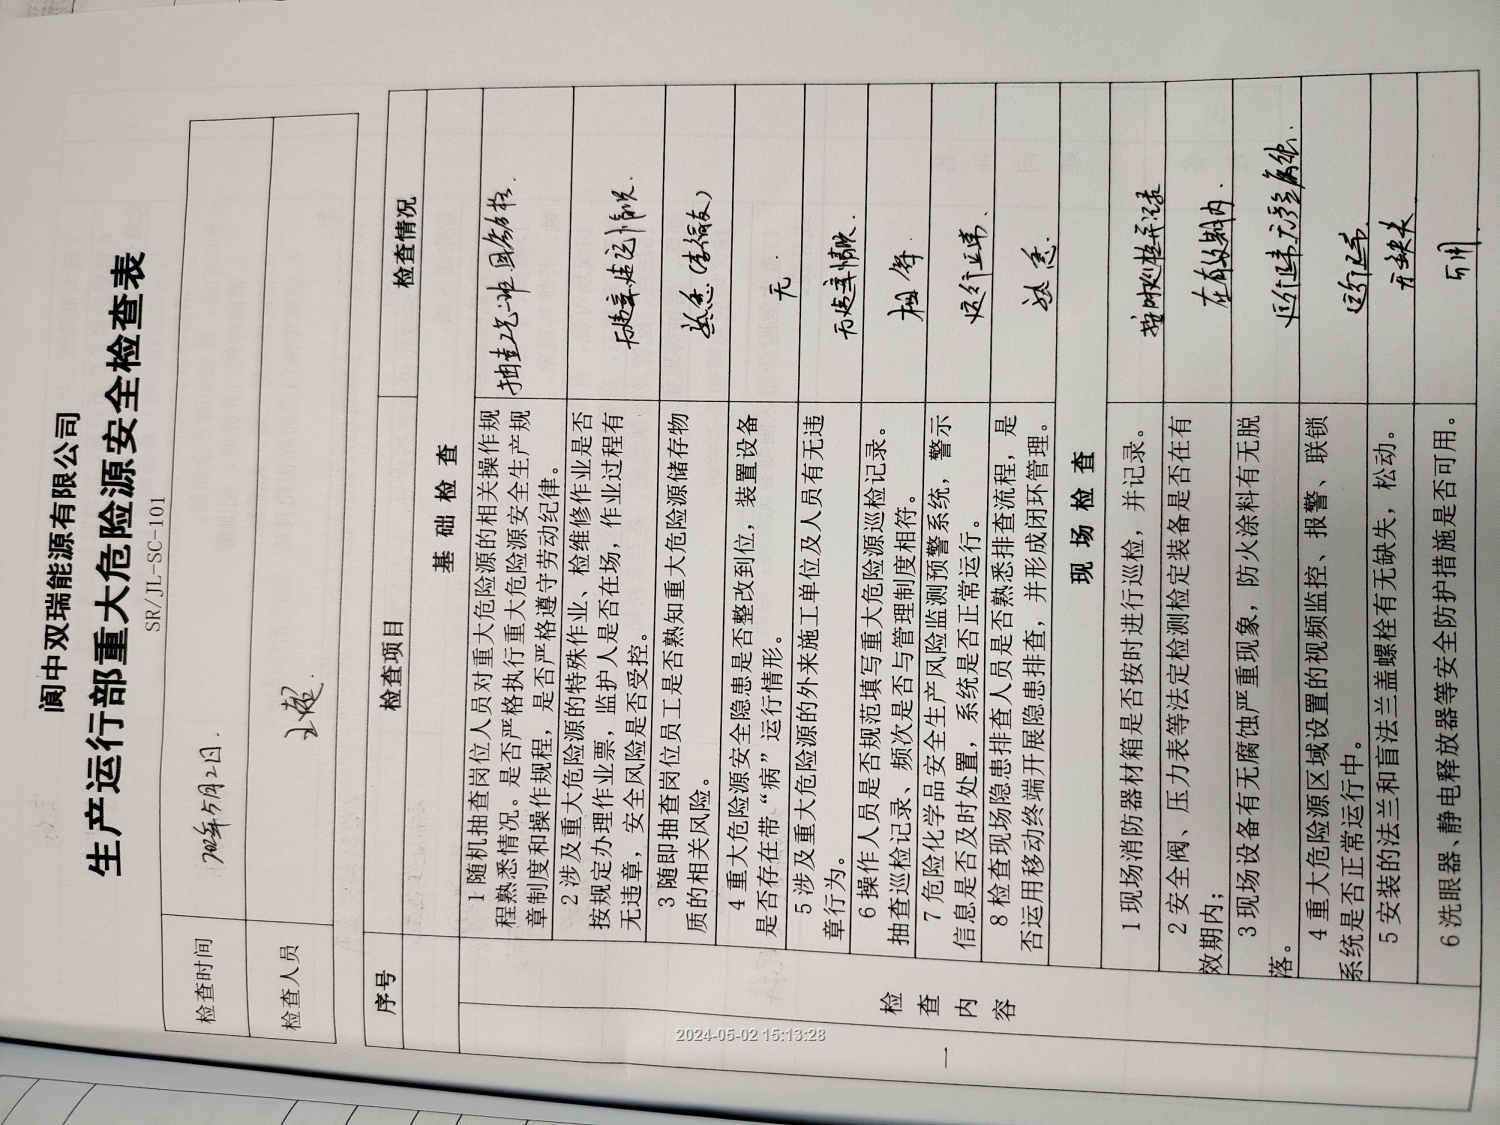 阆中双瑞能源有限公司
生产运行部重大危险源安全检查表
SR/JL-SC-101
检查时间
2024年5月2日.
检查人员
王超.
序号
检查项目
检查情况
基 础 检 查
1 随机抽查岗位人员对重大危险源的相关操作规
程熟悉情况。是否严格执行重大危险源安全生产规
章制度和操作规程，是否严格遵守劳动纪律。
抽查工艺二班
2 涉及重大危险源的特殊作业、检维修作业是否
按规定办理作业票，监护人是否在场，作业过程有
无违章，安全风险是否受控。
无违章违纪情况.
3 随即抽查岗位员工是否熟知重大危险源储存物
质的相关风险。
熟悉
4 重大危险源安全隐患是否整改到位，装置设备
是否存在带“病”运行情形。
无.
5 涉及重大危险源的外来施工单位及人员有无违
章行为。
无违章情况.
6 操作人员是否规范填写重大危险源巡检记录。
抽查巡检记录、频次是否与管理制度相符。
相符
7 危险化学品安全生产风险监测预警系统，警示
信息是否及时处置，系统是否正常运行。
运行正常.
8 检查现场隐患排查人员是否熟悉排查流程，是
否运用移动终端开展隐患排查，并形成闭环管理。
熟悉.
现 场 检 查
1 现场消防器材箱是否按时进行巡检，并记录。
按时巡检并记录
2 安全阀、压力表等法定检测检定装备是否在有
效期内；
在有效期内.
3 现场设备有无腐蚀严重现象，防火涂料有无脱
落。
运行正常无严重腐蚀.
4 重大危险源区域设置的视频监控、报警、联锁
系统是否正常运行中。
运行正常
5 安装的法兰和盲法兰盖螺栓有无缺失，松动。
无缺失
6 洗眼器、静电释放器等安全防护措施是否可用。
可用
检
查
内
容
一
2024-05-02 15:13:28